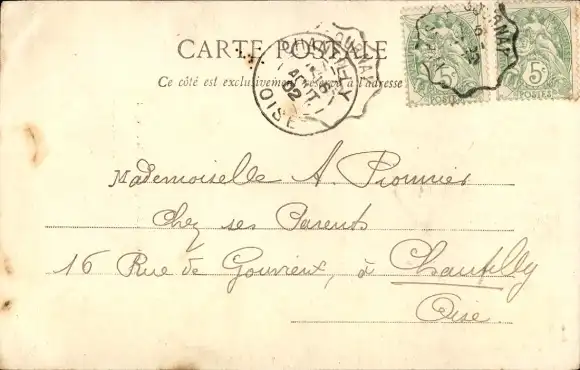 CARTE POSTALE
Ce côté est exclusivement réservé à l'adresse
CHANTILLY
AOUT
02
OISE
5c
POSTES
5c
POSTES
Mademoiselle A. Pionnier
Chez ses Parents
16 Rue de Gouvieux, à Chantilly
Oise.